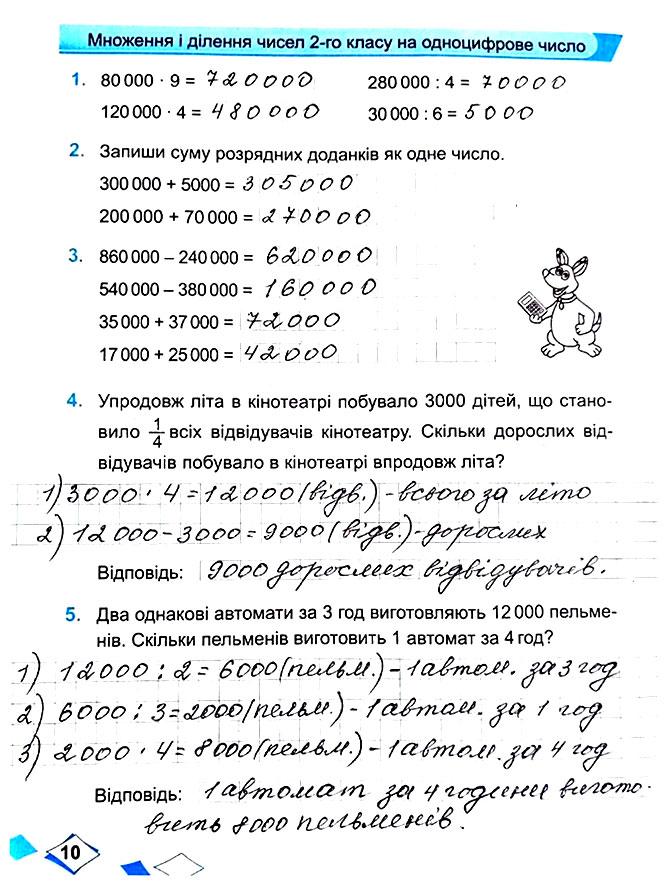 Множення і ділення чисел 2-го класу на одноцифрове число
1. 80 000 · 9 = 720000 280 000 : 4 = 70000
120 000 · 4 = 480000 30 000 : 6 = 5000
2. Запиши суму розрядних доданків як одне число.
300 000 + 5000 = 305000
200 000 + 70 000 = 270000
3. 860 000 – 240 000 = 620000
540 000 – 380 000 = 160000
35 000 + 37 000 = 72000
17 000 + 25 000 = 42000
4. Упродовж літа в кінотеатрі побувало 3000 дітей, що стано-
вило 1/4 всіх відвідувачів кінотеатру. Скільки дорослих від-
відувачів побувало в кінотеатрі впродовж літа?
1) 3000 · 4 = 12000 (відв.) - всього за літо
2) 12 000 - 3000 = 9000 (відв.) - дорослих
Відповідь: 9000 дорослих відвідувачів.
5. Два однакові автомати за 3 год виготовляють 12 000 пельме-
нів. Скільки пельменів виготовить 1 автомат за 4 год?
1) 12000 : 2 = 6000 (пельм.) - 1 автом. за 3 год
2) 6000 : 3 = 2000 (пельм.) - 1 автом. за 1 год
3) 2000 · 4 = 8000 (пельм.) - 1 автом. за 4 год
Відповідь: 1 автомат за 4 години вигото-
вить 8000 пельменів.
10